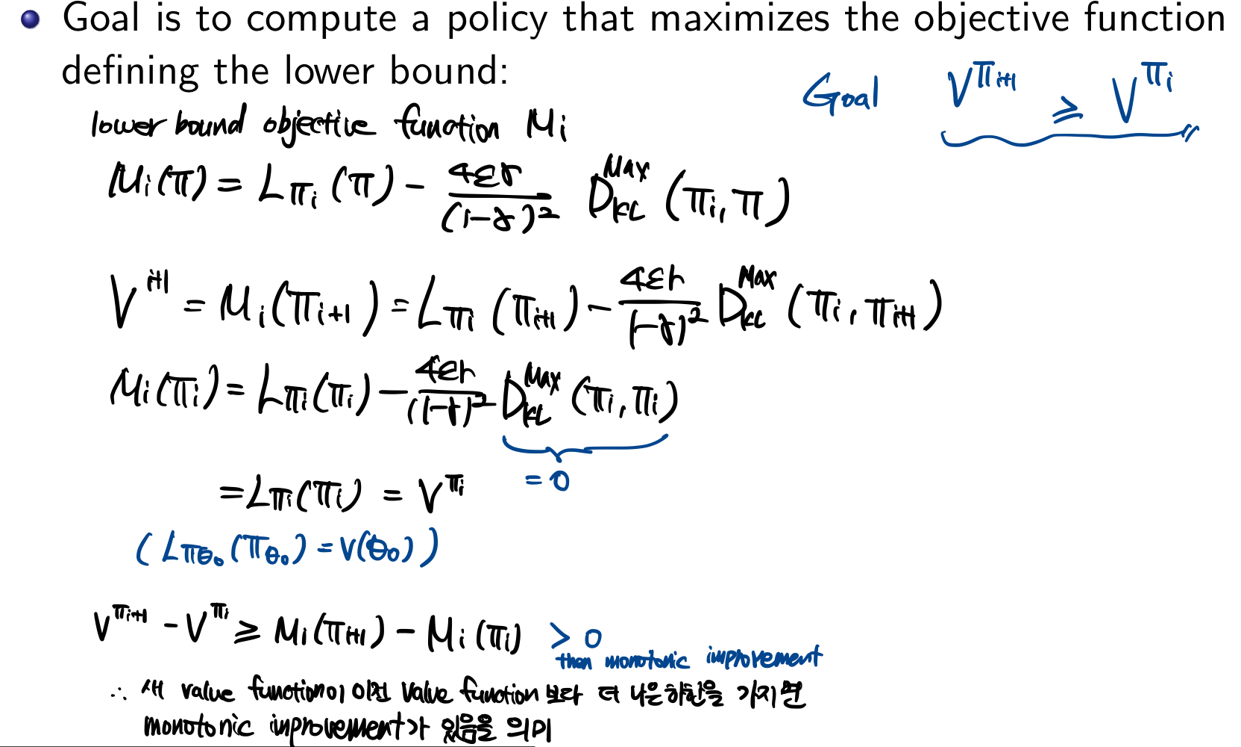 Goal is to compute a policy that maximizes the objective function
defining the lower bound:
Goal V^{π_{i+1}} ≥ V^{π_i}
lower bound objective function M_i
M_i(π) = L_{π_i}(π) - \frac{4εγ}{(1-γ)^2} D_{KL}^{Max}(π_i, π)
V^{i+1} = M_i(π_{i+1}) = L_{π_i}(π_{i+1}) - \frac{4εr}{(1-γ)^2} D_{KL}^{Max}(π_i, π_{i+1})
M_i(π_i) = L_{π_i}(π_i) - \frac{4εr}{(1-γ)^2} D_{KL}^{Max}(π_i, π_i)
= 0
= L_{π_i}(π_i) = V^{π_i}
( L_{π_{θ_0}}(π_{θ_0}) = V(θ_0) )
V^{π_{i+1}} - V^{π_i} ≥ M_i(π_{i+1}) - M_i(π_i) > 0
then monotonic improvement
∴ 새 value function이 이전 Value function 보다 더 나은하한을 가지면
monotonic inprovement가 있음을 의미